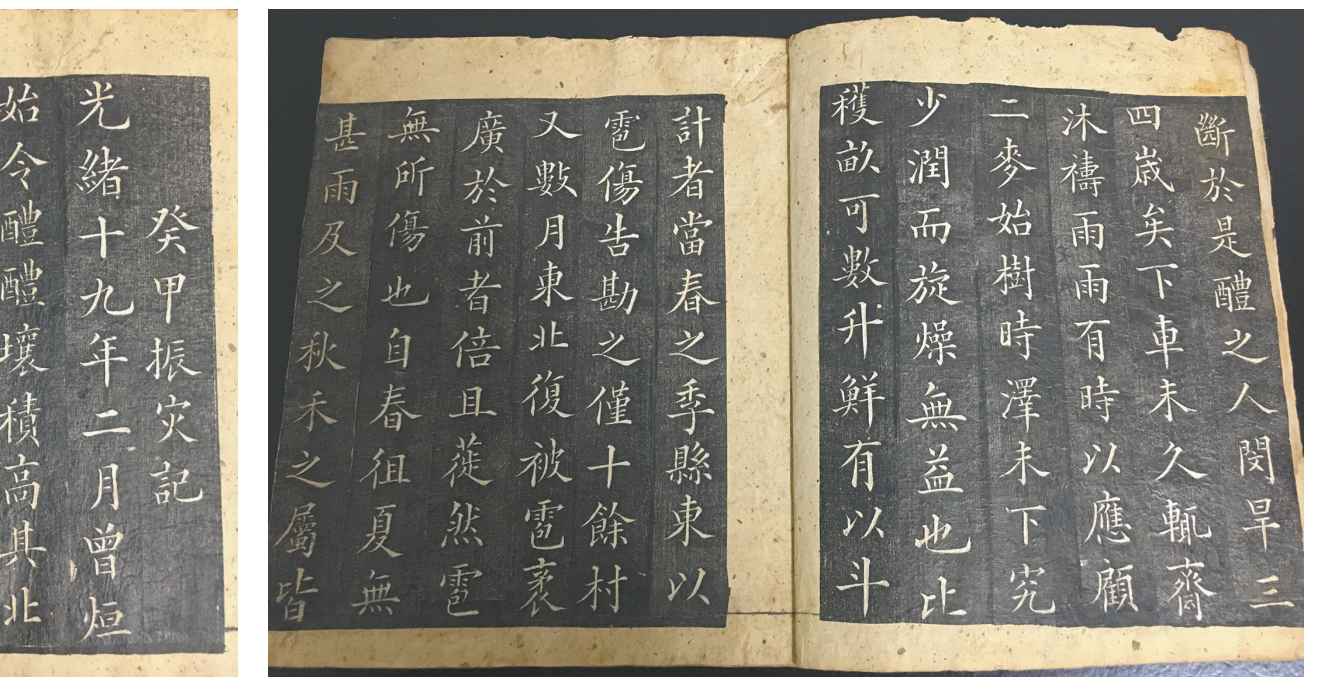 癸甲振灾記
光緒十九年二月曾烜
始令醴醴壤積高其北
斷於是醴之人閔旱三
四歳矣下車未久輒齋
沐禱雨雨有時以應顧
二麥始樹時澤未下究
少潤而旋燥無益也比
穫畝可數升鮮有以斗
計者當春之季縣東以
雹傷告勘之僅十餘村
又數月東北復被雹袤
廣於前者倍且蓰然雹
無所傷也自春徂夏無
甚雨及之秋禾之屬皆